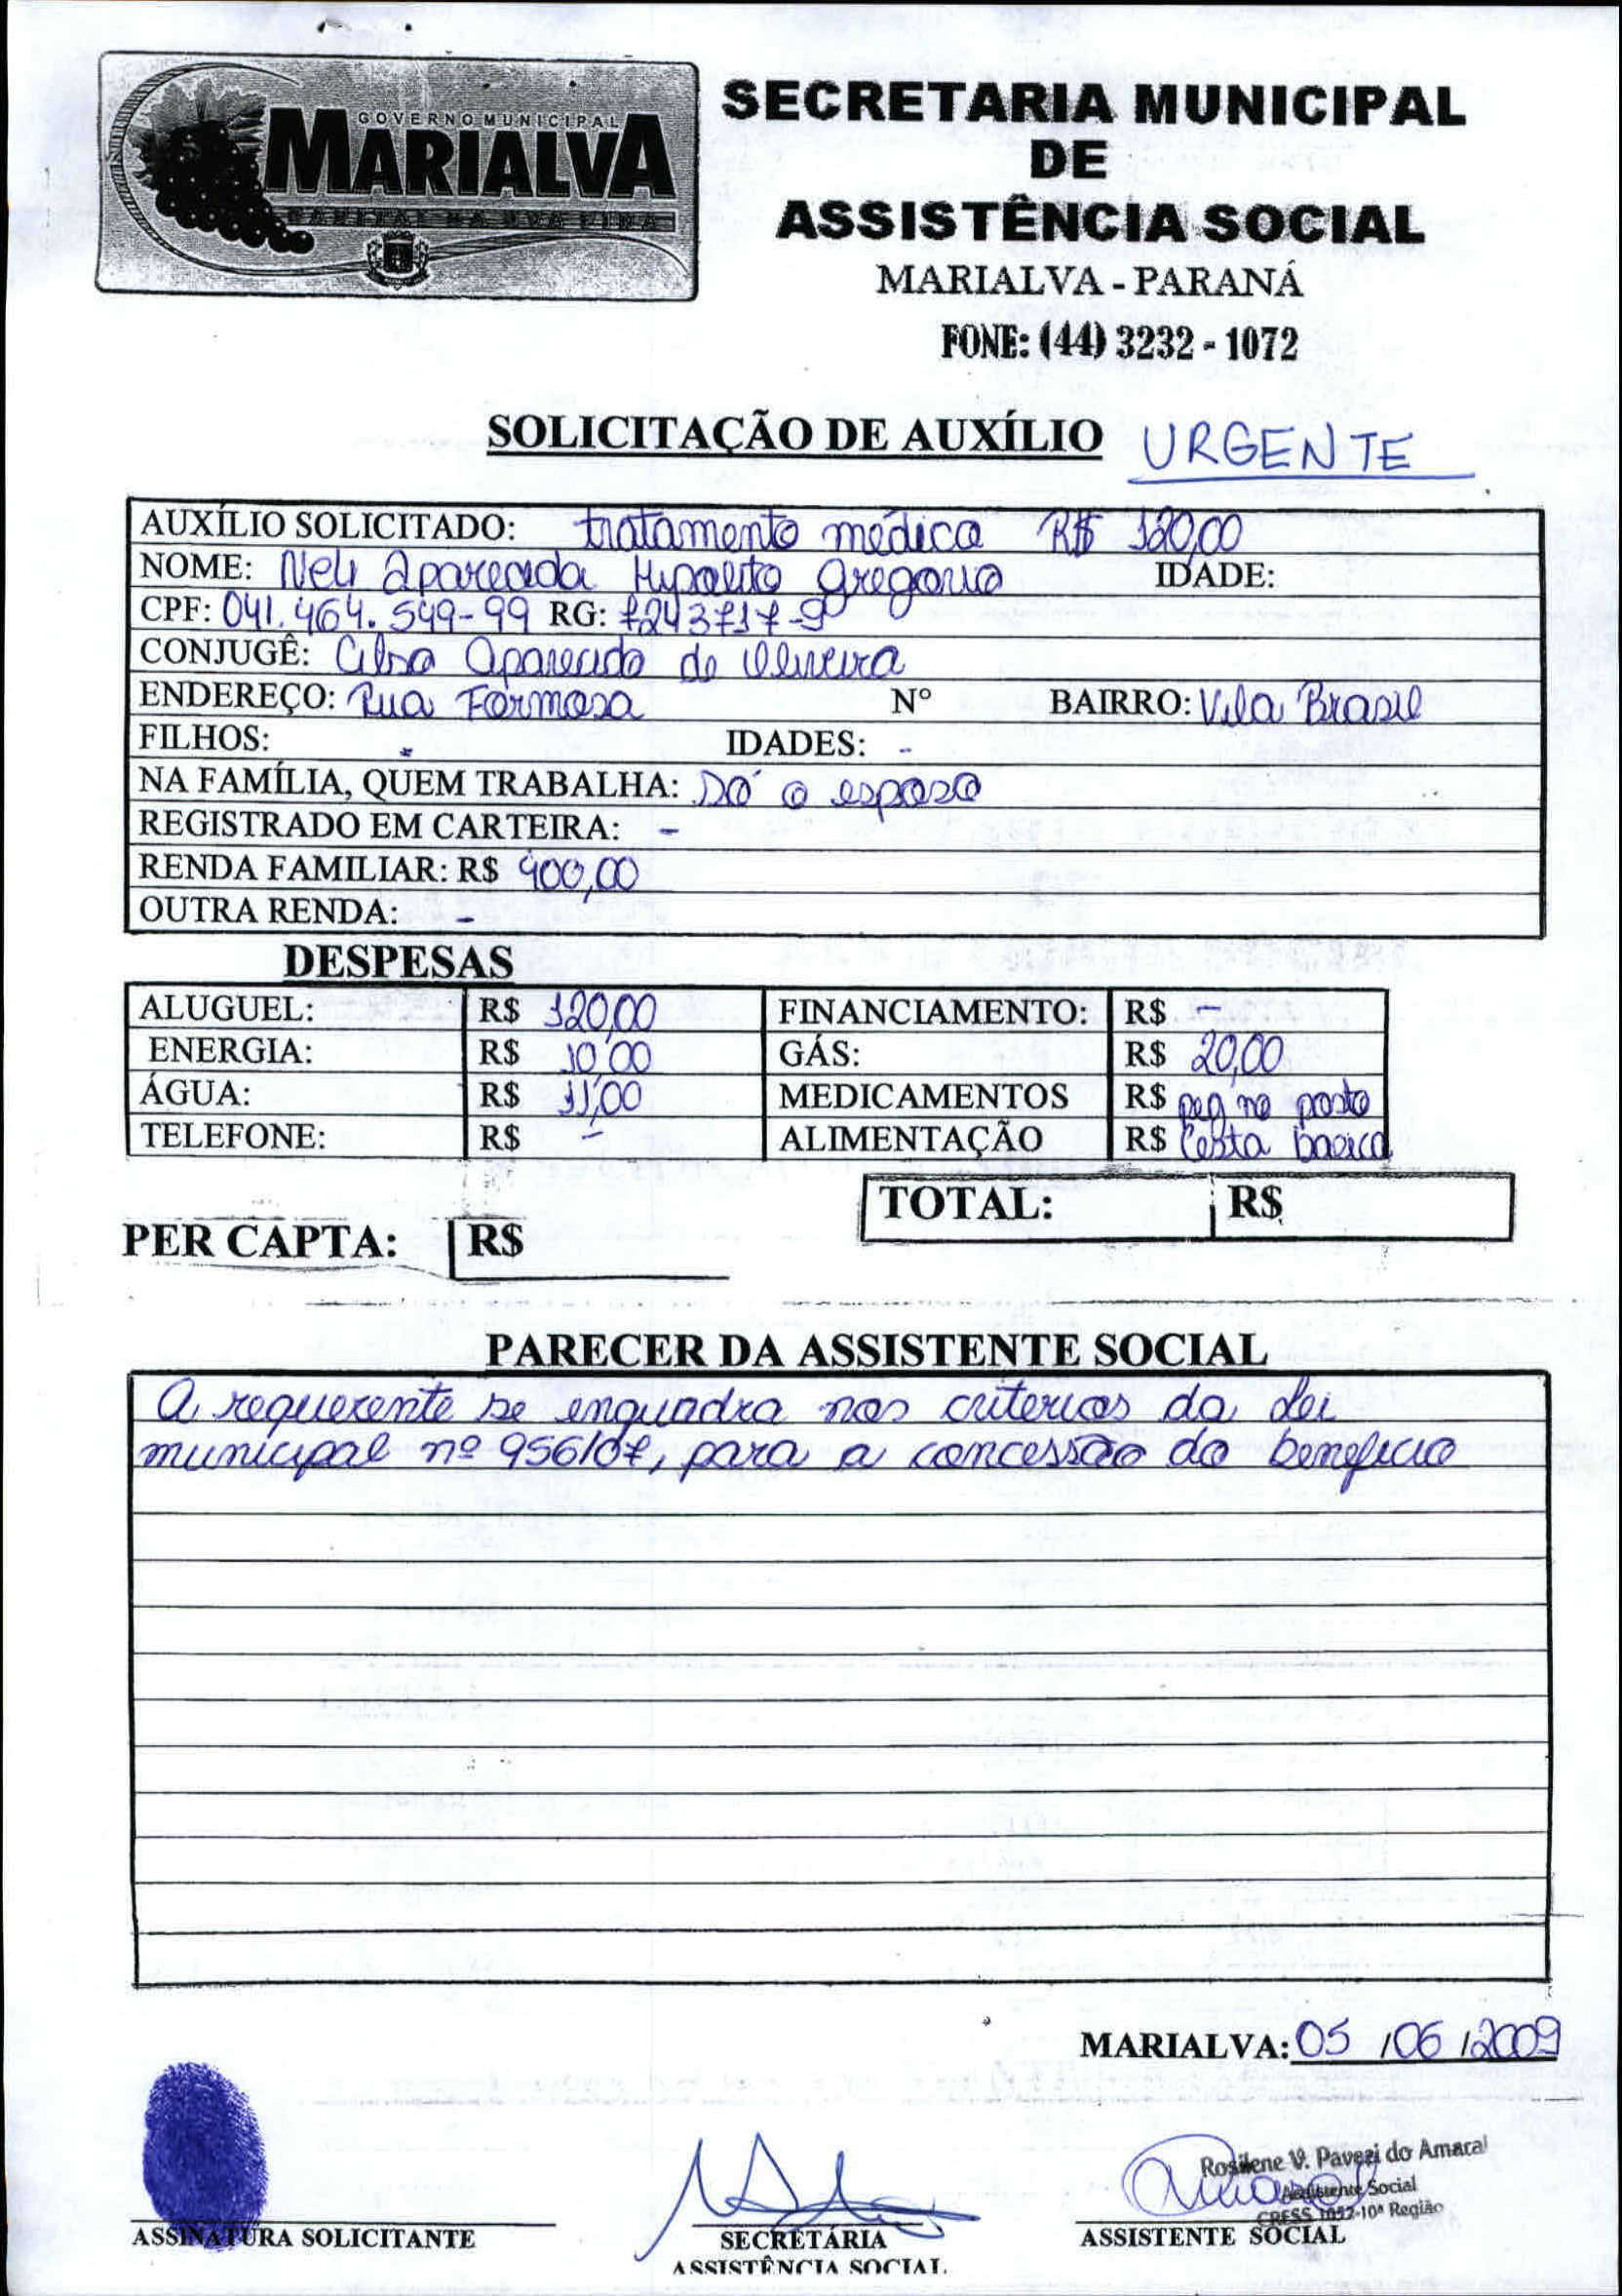 GOVERNO MUNICIPAL
MARIALVA
CAPITAL DA UVA FINA
SECRETARIA MUNICIPAL
DE
ASSISTÊNCIA SOCIAL
MARIALVA - PARANÁ
FONE: (44) 3232 - 1072
SOLICITAÇÃO DE AUXÍLIO URGENTE
AUXÍLIO SOLICITADO: tratamento médico R$ 120,00
NOME: Neli Aparecida Hipolito Gregorio IDADE:
CPF: 041.464.549-99 RG: 7243717-9
CONJUGÊ: Celso Aparecido de Oliveira
ENDEREÇO: Rua Formosa Nº BAIRRO: Vila Brasil
FILHOS: - IDADES: -
NA FAMÍLIA, QUEM TRABALHA: Só o esposo
REGISTRADO EM CARTEIRA: -
RENDA FAMILIAR: R$ 400,00
OUTRA RENDA: -
DESPESAS
ALUGUEL: R$ 120,00 FINANCIAMENTO: R$ -
ENERGIA: R$ 10,00 GÁS: R$ 20,00
ÁGUA: R$ 11,00 MEDICAMENTOS R$ peg no posto
TELEFONE: R$ - ALIMENTAÇÃO R$ Cesta basica
TOTAL: R$
PER CAPTA: R$
PARECER DA ASSISTENTE SOCIAL
A requerente se enquadra nos criterios da Lei
municipal nº 956/07, para a concessão do beneficio
MARIALVA: 05 /06 /2009
Rosilene V. Pavezi do Amaral
Assistente Social
CRESS 1052-10ª Região
ASSINATURA SOLICITANTE SECRETÁRIA ASSISTENTE SOCIAL
ASSISTÊNCIA SOCIAL